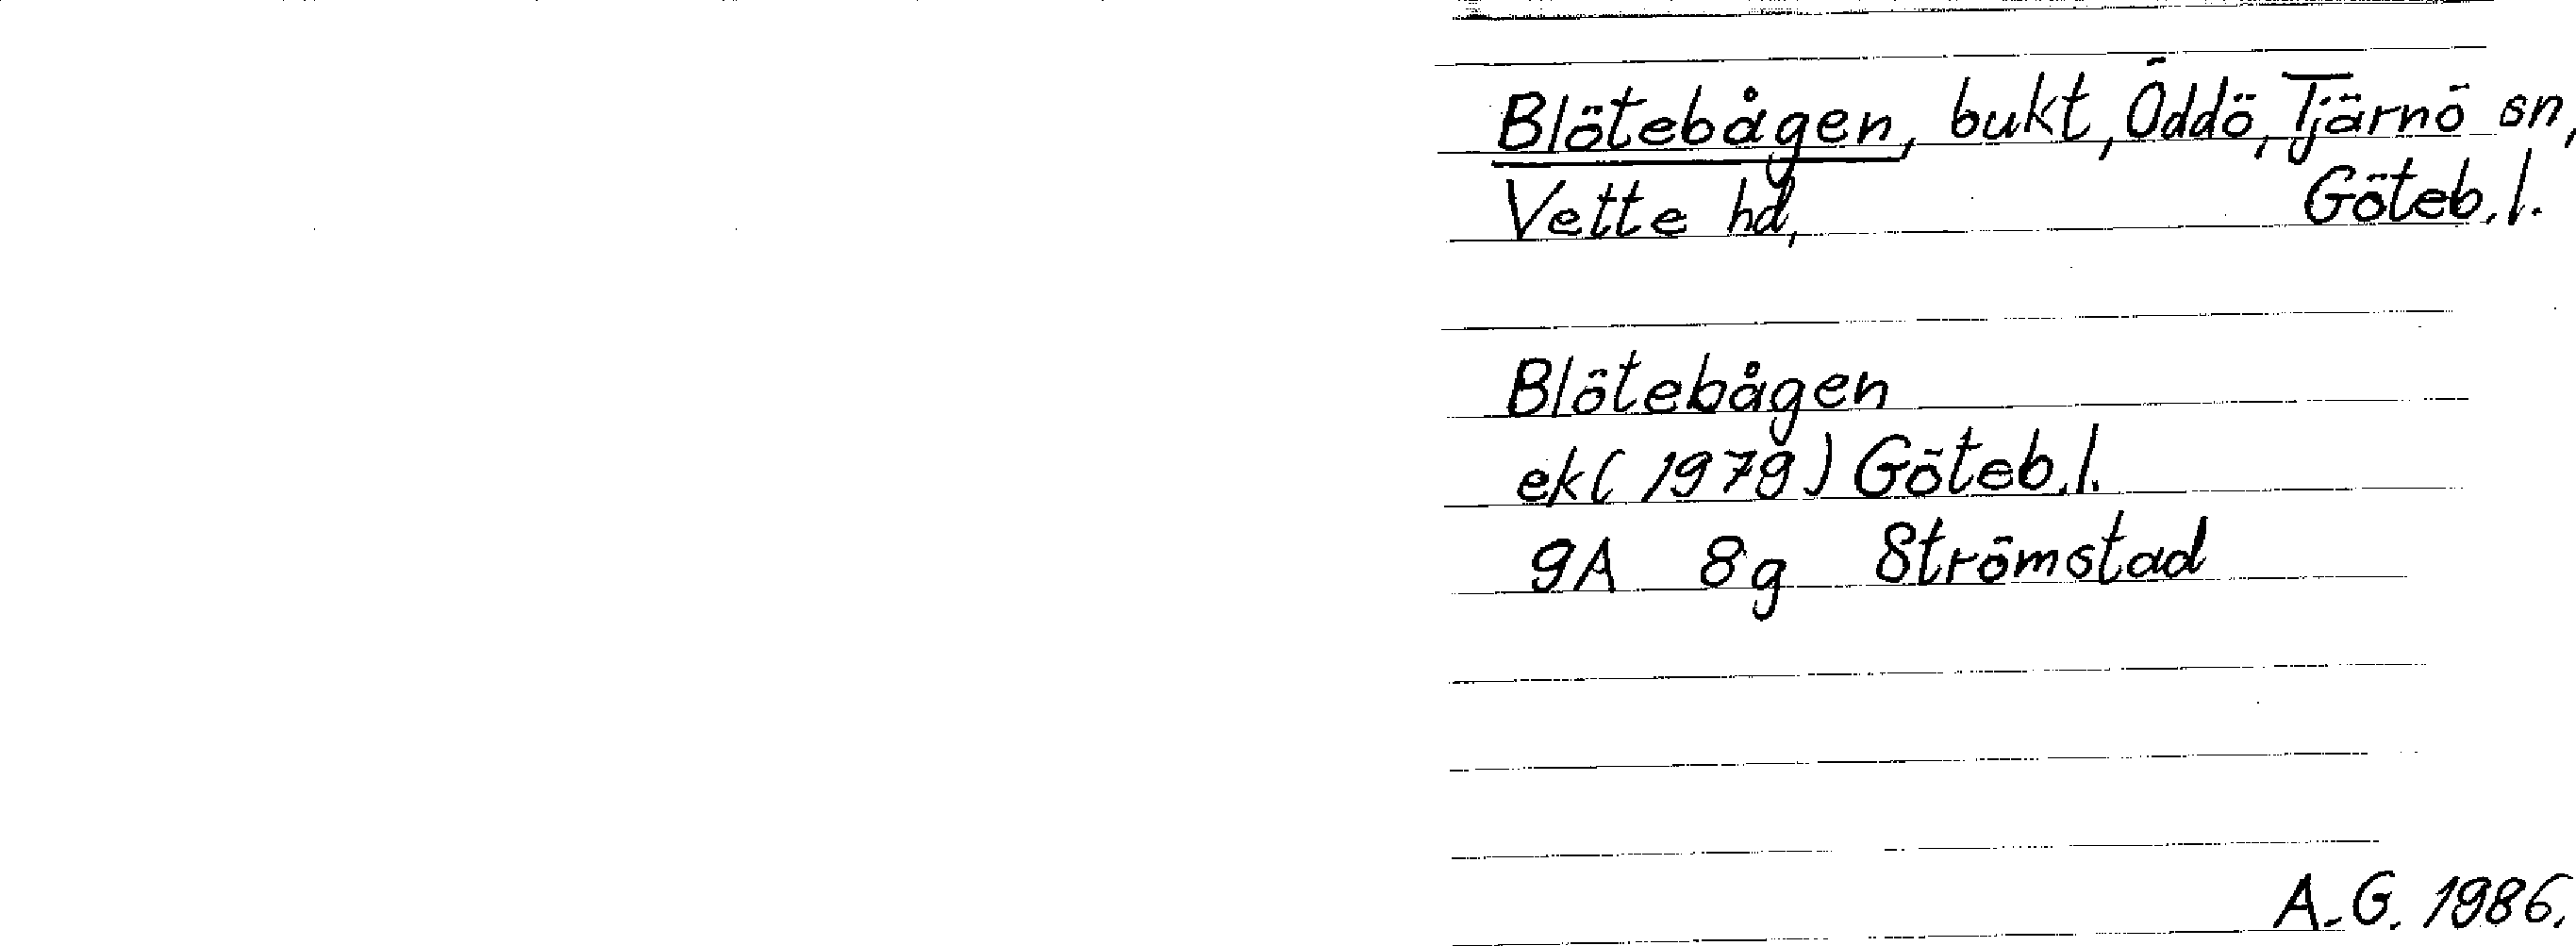 Blötebågen, bukt, Öddö, Tjärnö sn,
Vette hd, Göteb.l.
Blötebågen
ek (1979) Göteb.l.
9A 8g Strömstad
A.G. 1986.